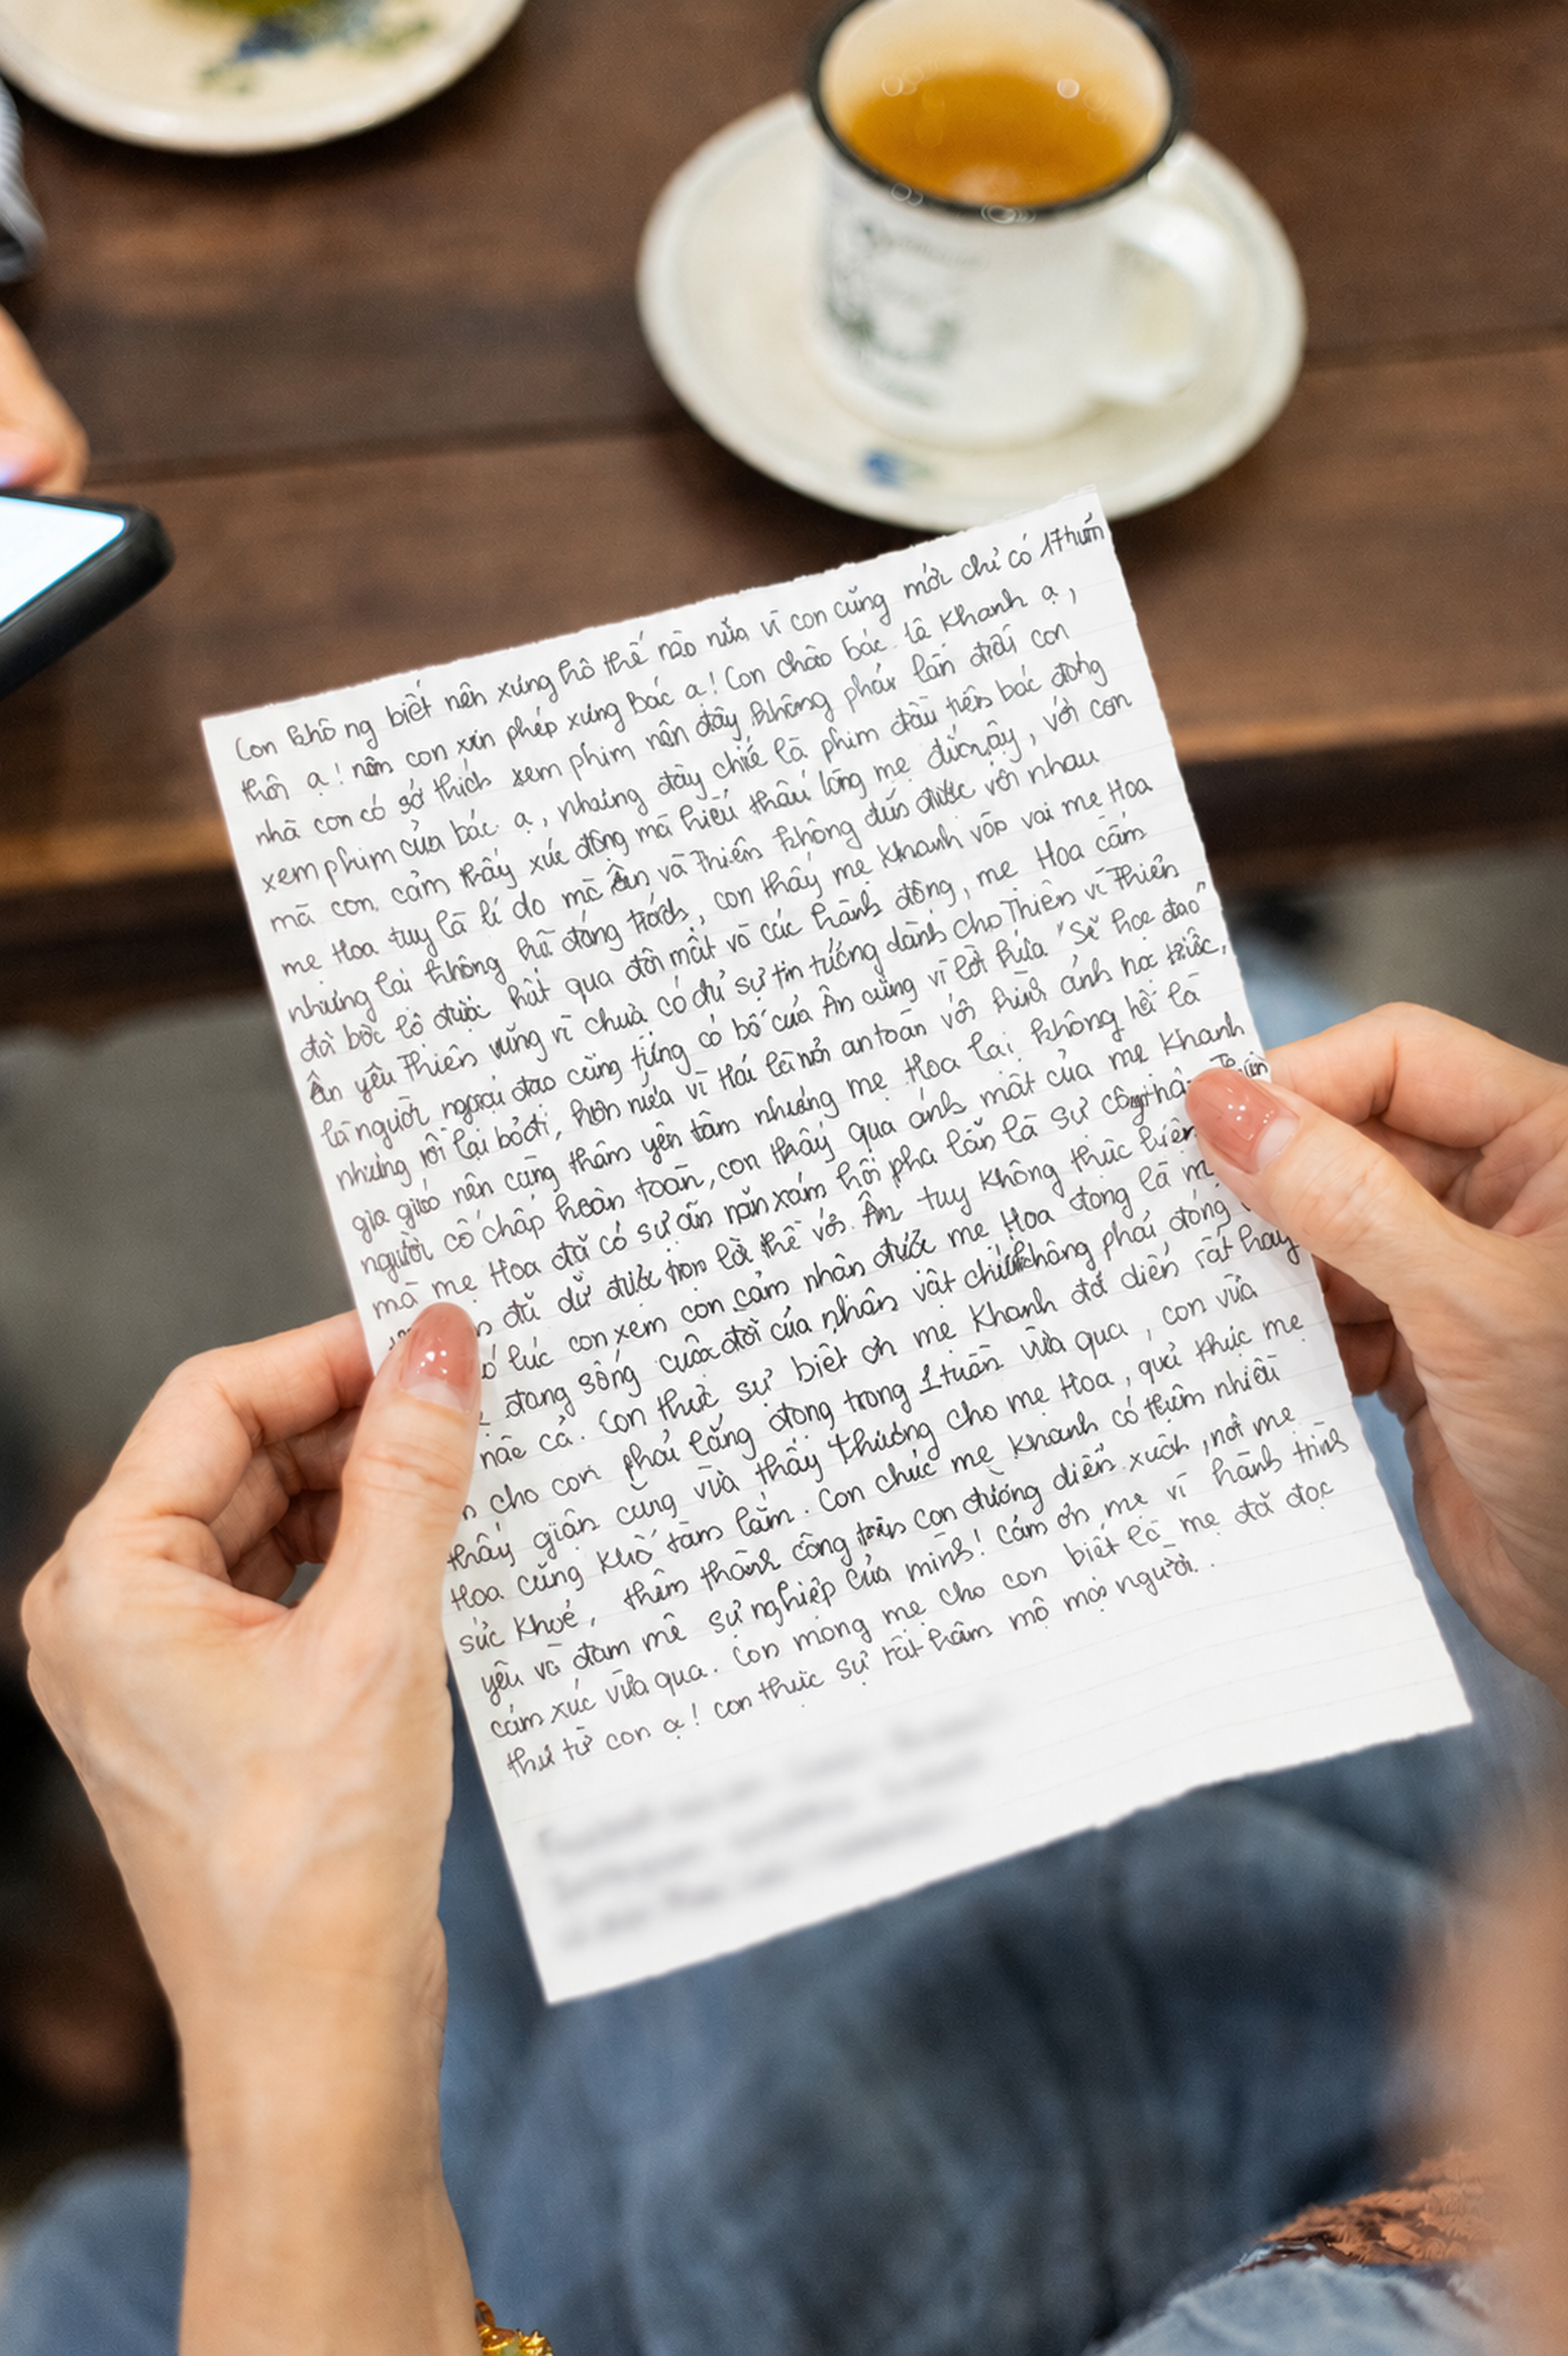 Con không biết nên xưng hô thế nào nữa vì con cũng mới chỉ có 17 tuổi
thôi ạ! nên con xin phép xưng Bác ạ! Con chào bác Lê Khanh ạ,
nhà con có sở thích xem phim nên đây không phải lần đầu con
xem phim của bác ạ, nhưng đây chiế là phim đầu tiên bác đóng
mà con cảm thấy xúc động mà hiểu thấu lòng mẹ đứcnậy, với con
mẹ Hoa tuy là lí do mà Ân và Thiên không đến được với nhau
nhưng lại không hề đáng trách, con thấy mẹ Khanh vào vai mẹ Hoa
đã bộc lộ được hết qua đôi mắt và các hành động, mẹ Hoa cấm
Ân yêu Thiên cũng vì chưa có đủ sự tin tưởng dành cho Thiên vì Thiên
là người ngoại đạo cũng từng có bố của Ân cũng vì lời hứa "sẽ học đạo"
nhưng rồi lại bỏ đi, hơn nữa vì Hải là nơi an toàn với hình ảnh nơ
gia giáo nên càng thêm yên tâm nhưng mẹ Hoa lại không hề là
người cố chấp hoàn toàn, con thấy qua ánh mắt của mẹ Khanh
mà mẹ Hoa đã có sự ăn năn xám hối pha lẫn là sự
đủ dữ được trọn là thề với Ân tuy không thực hiện
lúc con xem con cảm nhận được mẹ Hoa đóng là
đang sống cuộc đời của nhân vật chứ không phải đóng
nào cả. Con thực sự biết ơn mẹ Khanh đã diễn rất hay
cho con phải lắng đọng trong 1 tuần vừa qua, con vừa
thấy giận cũng vừa thấy thương cho mẹ Hoa, quả thực mẹ
Hoa cũng khổ tâm lắm. Con chúc mẹ Khanh có thêm nhiều
sức khoẻ, thêm thành công trên con đường diễn xuất, nơi mẹ
yêu và đam mê sự nghiệp của mình! Cảm ơn mẹ vì hành trình
cảm xúc vừa qua. Con mong mẹ cho con biết là mẹ đã đọc
thư từ con ạ! con thực sự rất hâm mộ mọi người.